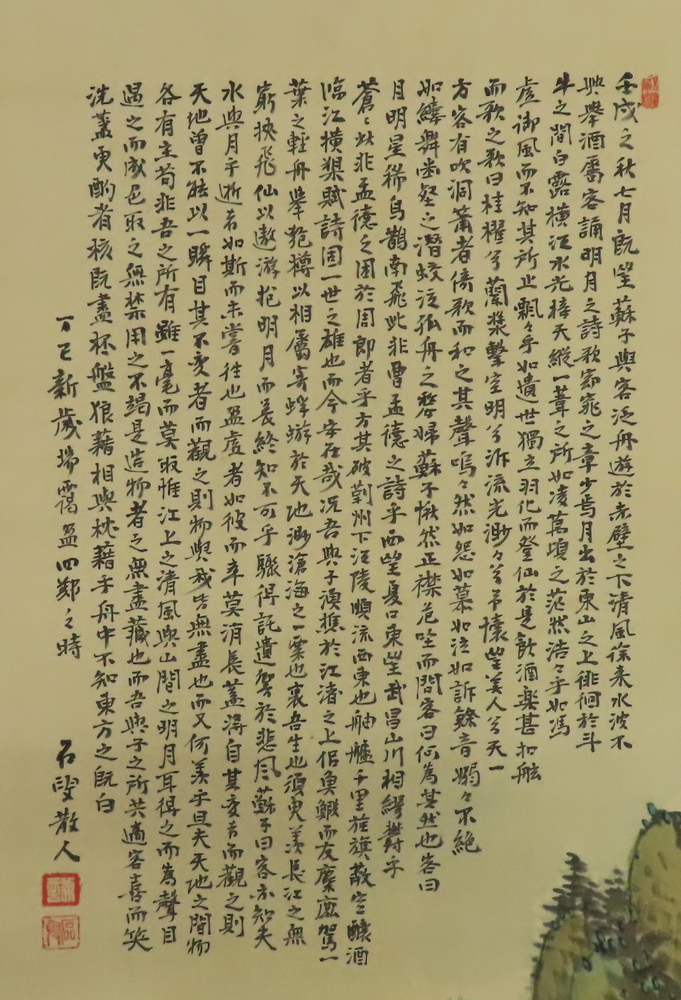 壬戌之秋七月既望蘇子與客泛舟遊於赤壁之下清風徐來水波不
興舉酒屬客誦明月之詩歌窈窕之章少焉月出於東山之上徘徊於斗
牛之間白露橫江水光接天縱一葦之所如凌萬頃之茫然浩々乎如馮
虛御風而不知其所止飄々乎如遺世獨立羽化而登仙於是飲酒樂甚扣舷
而歌之歌曰桂櫂兮蘭槳擊空明兮泝流光渺々兮予懷望美人兮天一
方客有吹洞簫者倚歌而和之其聲嗚々然如怨如慕如泣如訴餘音嫋々不絕
如縷舞幽壑之潛蛟泣孤舟之嫠婦蘇子愀然正襟危坐而問客曰何為其然也客曰
月明星稀烏鵲南飛此非曹孟德之詩乎西望夏口東望武昌山川相繆鬱乎
蒼々此非孟德之困於周郎者乎方其破荊州下江陵順流而東也舳艫千里旌旗蔽空釃酒
臨江橫槊賦詩固一世之雄也而今安在哉況吾與子漁樵於江渚之上侶魚蝦而友麋鹿駕一
葉之輕舟舉匏樽以相屬寄蜉蝣於天地渺滄海之一粟也哀吾生也須臾羨長江之無
窮挾飛仙以遨游抱明月而長終知不可乎驟得託遺響於悲風蘇子曰客亦知夫
水與月乎逝者如斯而未嘗往也盈虛者如彼而卒莫消長蓋將自其變者而觀之則
天地曾不能以一瞬自其不變者而觀之則物與我皆無盡也而又何羨乎且夫天地之間物
各有主苟非吾之所有雖一毫而莫取惟江上之清風與山間之明月耳得之而為聲目
遇之而成色取之無禁用之不竭是造物者之無盡藏也而吾與子之所共適客喜而笑
洗盞更酌肴核既盡杯盤狼藉相與枕藉乎舟中不知東方之既白
丁巳新歲瑞靄盈四鄰之時
石叟散人